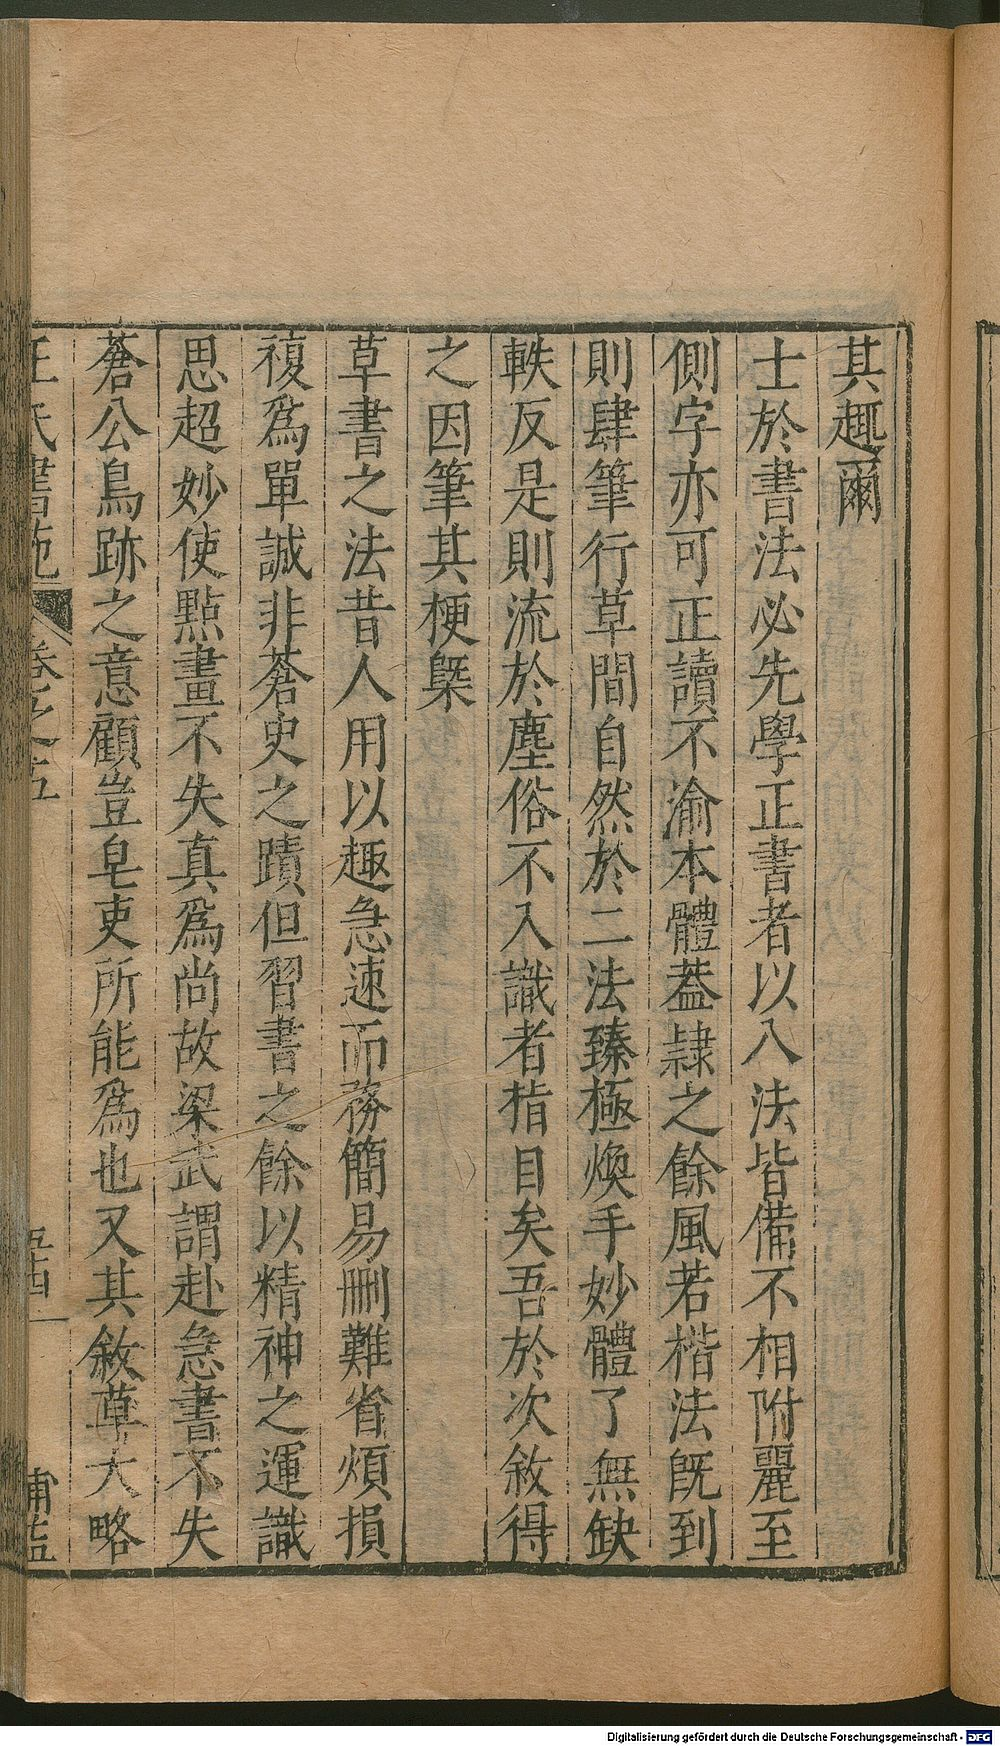 其趣爾
士於書法必先學正書者以入法皆備不相附麗至
側字亦可正讀不渝本體蓋隷之餘風若楷法既到
則肆筆行草間自然於二法臻極煥手妙體了無缺
軼反是則流於塵俗不入識者指目矣吾於次敘得
之因筆其梗槩
草書之法昔人用以趣急速而務簡易刪難省煩損
複為單誠非蒼史之蹟但習書之餘以精神之運識
思超妙使點畫不失真為尚故梁武謂赴急書不失
蒼公鳥跡之意顧豈皂吏所能為也又其敘草大略
王氏書苑 卷之五 五四 補益
Digitalisierung gefördert durch die Deutsche Forschungsgemeinschaft - DFG